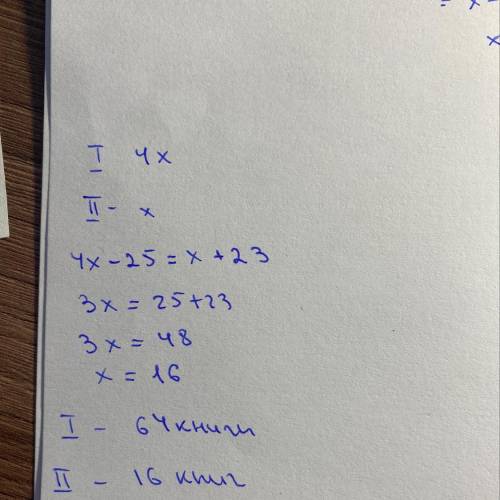 = x -
x
I 4x
II - x
4x - 25 = x + 23
3x = 25 + 23
3x = 48
x = 16
I - 64 книги
II - 16 книг